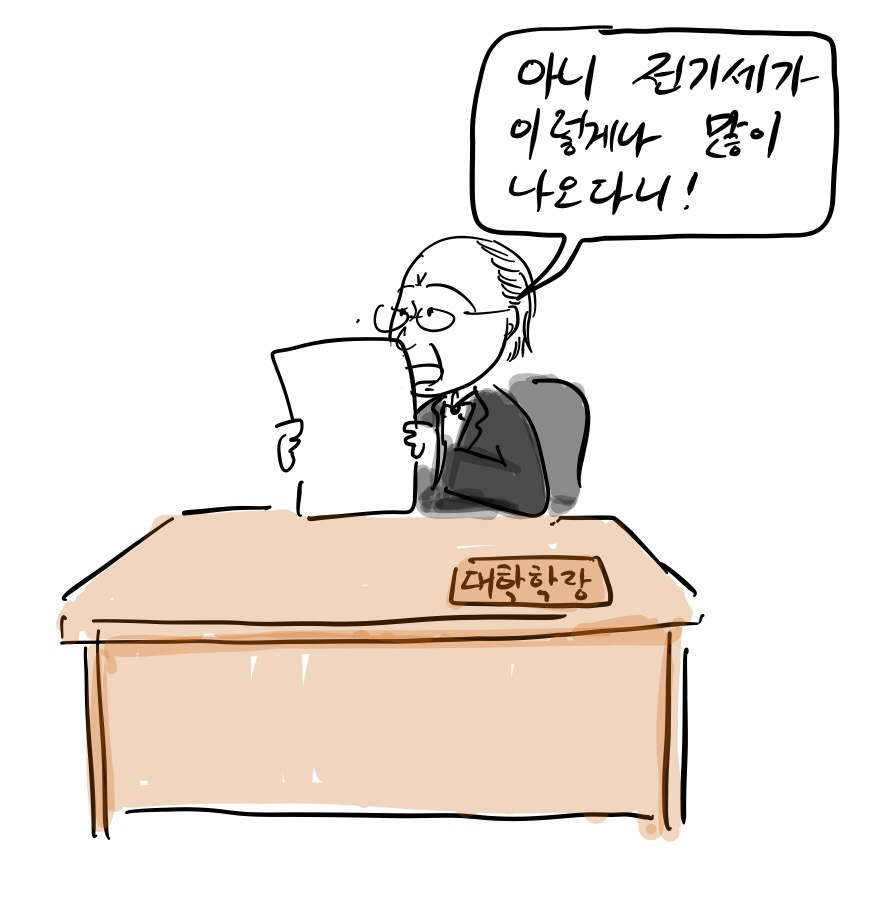 아니 전기세가
이렇게나 많이
나오다니!
대학학장